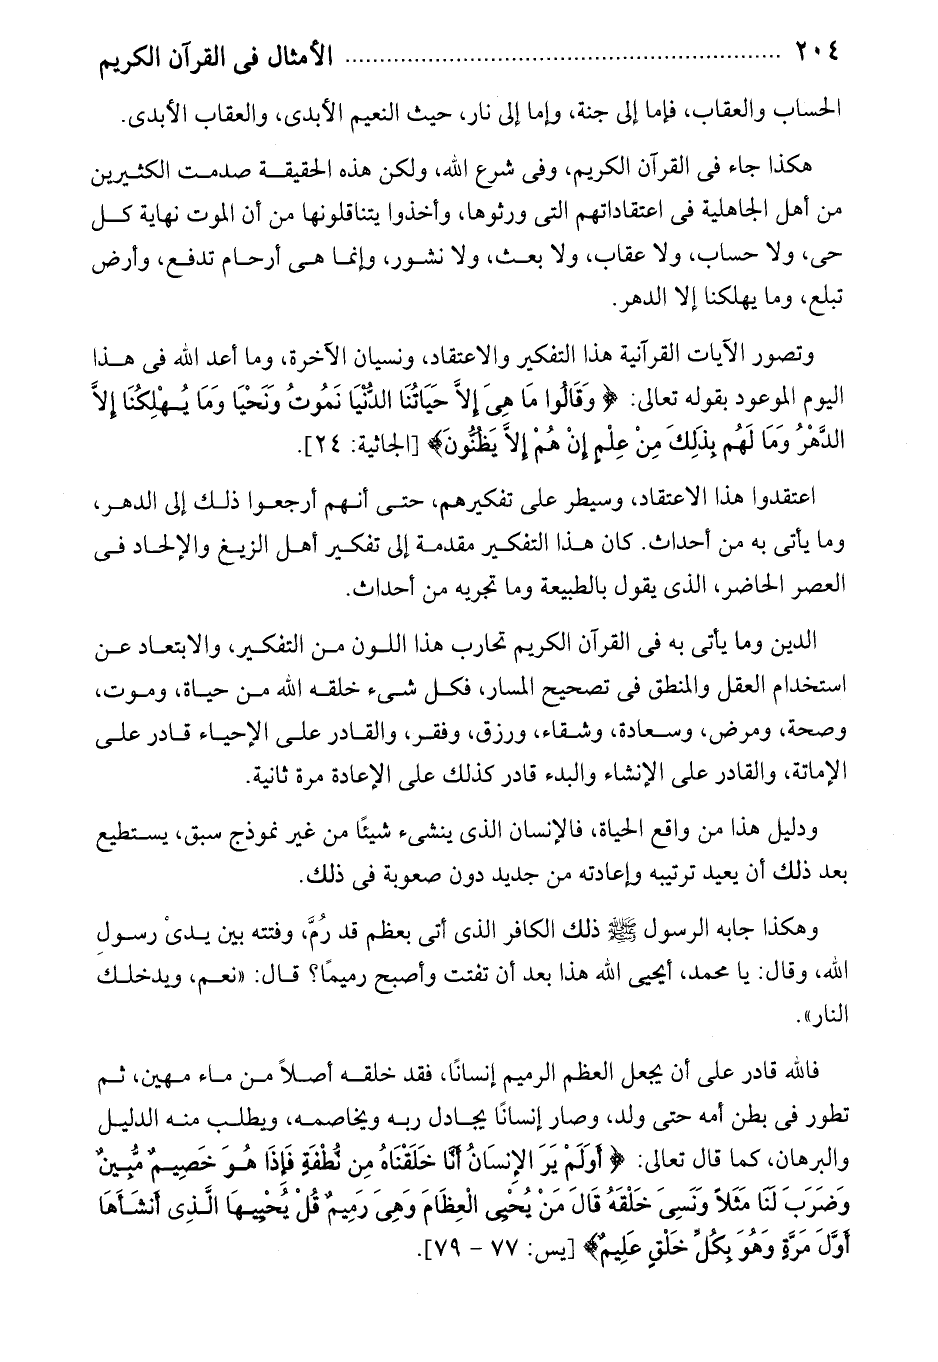 ٢٠٤ ........................................................ الأمثال فى القرآن الكريم
الحساب والعقاب، فإما إلى جنة، وإما إلى نار، حيث النعيم الأبدى، والعقاب الأبدى.
هكذا جاء فى القرآن الكريم، وفى شرع الله، ولكن هذه الحقيقة صدمت الكثيرين
من أهل الجاهلية فى اعتقاداتهم التى ورثوها، وأخذوا يتناقلونها من أن الموت نهاية كل
حى، ولا حساب، ولا عقاب، ولا بعث، ولا نشور، وإنما هى أرحام تدفع، وأرض
تبلع، وما يهلكنا إلا الدهر.
وتصور الآيات القرآنية هذا التفكير والاعتقاد، ونسيان الآخرة، وما أعد الله فى هذا
اليوم الموعود بقوله تعالى: ﴿ وَقَالُوا مَا هِىَ إِلاَّ حَيَاتُنَا الدُّنْيَا نَمُوتُ وَنَحْيَا وَمَا يُهْلِكُنَا إِلاَّ
الدَّهْرُ وَمَا لَهُم بِذَلِكَ مِنْ عِلْمٍ إِنْ هُمْ إِلاَّ يَظُنُّونَ﴾ [الجاثية: ٢٤].
اعتقدوا هذا الاعتقاد، وسيطر على تفكيرهم، حتى أنهم أرجعوا ذلك إلى الدهر،
وما يأتى به من أحداث. كان هذا التفكير مقدمة إلى تفكير أهل الزيغ والإلحاد فى
العصر الحاضر، الذى يقول بالطبيعة وما تجريه من أحداث.
الدين وما يأتى به فى القرآن الكريم تحارب هذا اللون من التفكير، والابتعاد عن
استخدام العقل والمنطق فى تصحيح المسار، فكل شىء خلقه الله من حياة، وموت،
وصحة، ومرض، وسعادة، وشقاء، ورزق، وفقر، والقادر على الإحياء قادر على
الإماتة، والقادر على الإنشاء والبدء قادر كذلك على الإعادة مرة ثانية.
ودليل هذا من واقع الحياة، فالإنسان الذى ينشىء شيئًا من غير نموذج سبق، يستطيع
بعد ذلك أن يعيد ترتيبه وإعادته من جديد دون صعوبة فى ذلك.
وهكذا جابه الرسول ﷺ ذلك الكافر الذى أتى بعظم قد رُمَّ، وفتته بين يدىْ رسولِ
الله، وقال: يا محمد، أيحيى الله هذا بعد أن تفتت وأصبح رميمًا؟ قال: «نعم، ويدخلك
النار».
فالله قادر على أن يجعل العظم الرميم إنسانًا، فقد خلقه أصلاً من ماء مهين، ثم
تطور فى بطن أمه حتى ولد، وصار إنسانًا يجادل ربه ويخاصمه، ويطلب منه الدليل
والبرهان، كما قال تعالى: ﴿ أَوَلَمْ يَرَ الإِنسَانُ أَنَّا خَلَقْنَاهُ مِن نُّطْفَةٍ فَإِذَا هُوَ خَصِيمٌ مُّبِينٌ
وَضَرَبَ لَنَا مَثَلاً وَنَسِىَ خَلْقَهُ قَالَ مَنْ يُحْيِى الْعِظَامَ وَهِىَ رَمِيمٌ قُلْ يُحْيِيهَا الَّذِى أَنشَأَهَا
أَوَّلَ مَرَّةٍ وَهُوَ بِكُلِّ خَلْقٍ عَلِيمٌ﴾ [يس: ٧٧ - ٧٩].